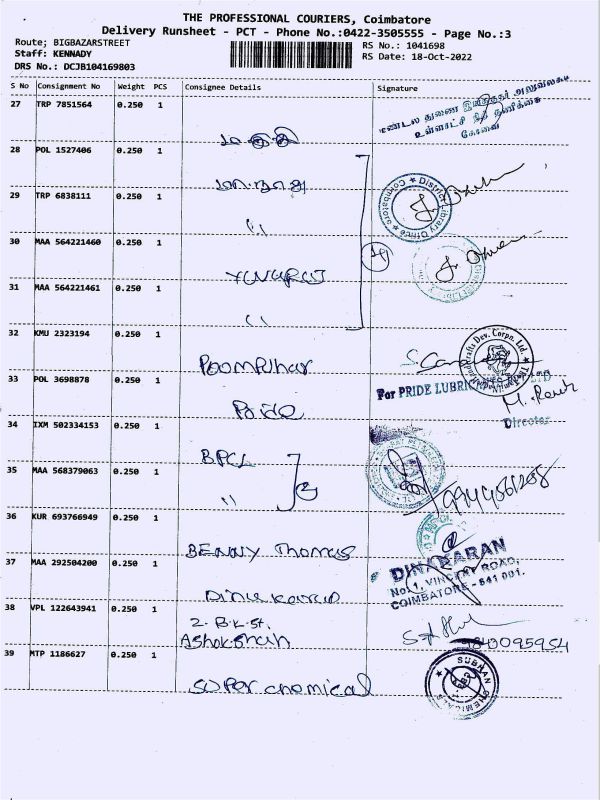 THE PROFESSIONAL COURIERS, Coimbatore
Delivery Runsheet - PCT - Phone No.:0422-3505555 - Page No.:3
Route; BIGBAZARSTREET
Staff: KENNADY
DRS No.: DCJB104169803
RS No.: 1041698
RS Date: 18-Oct-2022
S No Consignment No Weight PCS Consignee Details Signature
27 TRP 7851564 0.250 1
மண்டல துணை இயக்குநர் அலுவலகம்
உள்ளாட்சி நிதி தணிக்கை
கோவை
28 POL 1527406 0.250 1
29 TRP 6838111 0.250 1
District Library Office Coimbatore
30 MAA 564221460 0.250 1
31 MAA 564221461 0.250 1
32 KMU 2323194 0.250 1
Poompuhar
33 POL 3698878 0.250 1
For PRIDE LUBRICANTS
Pride
Director
34 IXM 502334153 0.250 1
BPCL
35 MAA 568379063 0.250 1
"
2
36 KUR 693766949 0.250 1
BENNY Thomas
37 MAA 292504200 0.250 1
DINAKARAN
No.1, VINCENT ROAD,
COIMBATORE - 641 001.
Dinakaran
38 VPL 122643941 0.250 1
2. B.K. St.
Ashokshah
39 MTP 1186627 0.250 1
SUBHAN CHEMICALS
Super chemical